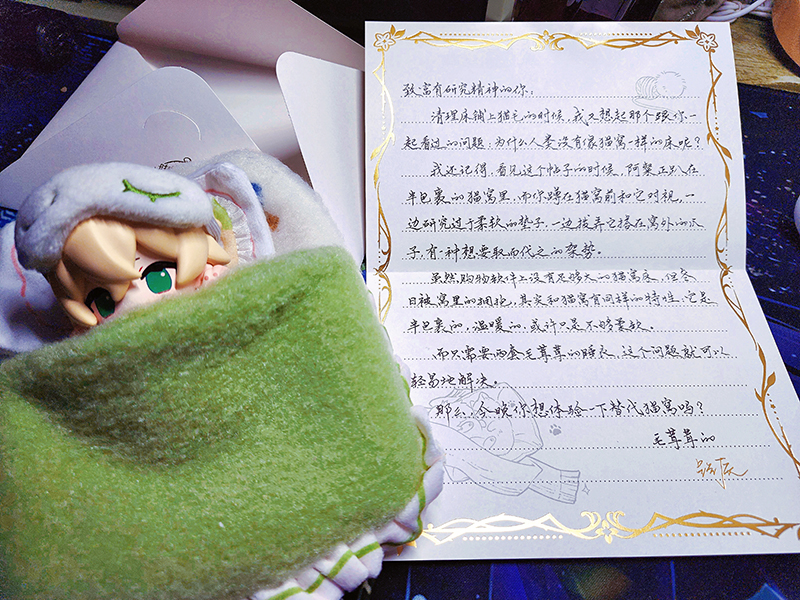 致富有研究精神的你：
清理床铺上猫毛的时候，我又想起那个跟你一
起看过的问题：为什么人类没有像猫窝一样的床呢？
我还记得，看见这个帖子的时候，阿柴正趴在
半包裹的猫窝里，而你蹲在猫窝前和它对视，一
边研究过于柔软的垫子，一边拨弄它搭在窝外的爪
子，有一种想要取而代之的架势。
虽然购物软件上没有足够大的猫窝床，但冬
日被窝里的拥抱，其实和猫窝有同样的特性，它是
半包裹的，温暖的，或许只是不够柔软。
而只需要两套毛茸茸的睡衣，这个问题就可以
轻易地解决。
那么，今晚你想体验一下替代猫窝吗？
毛茸茸的